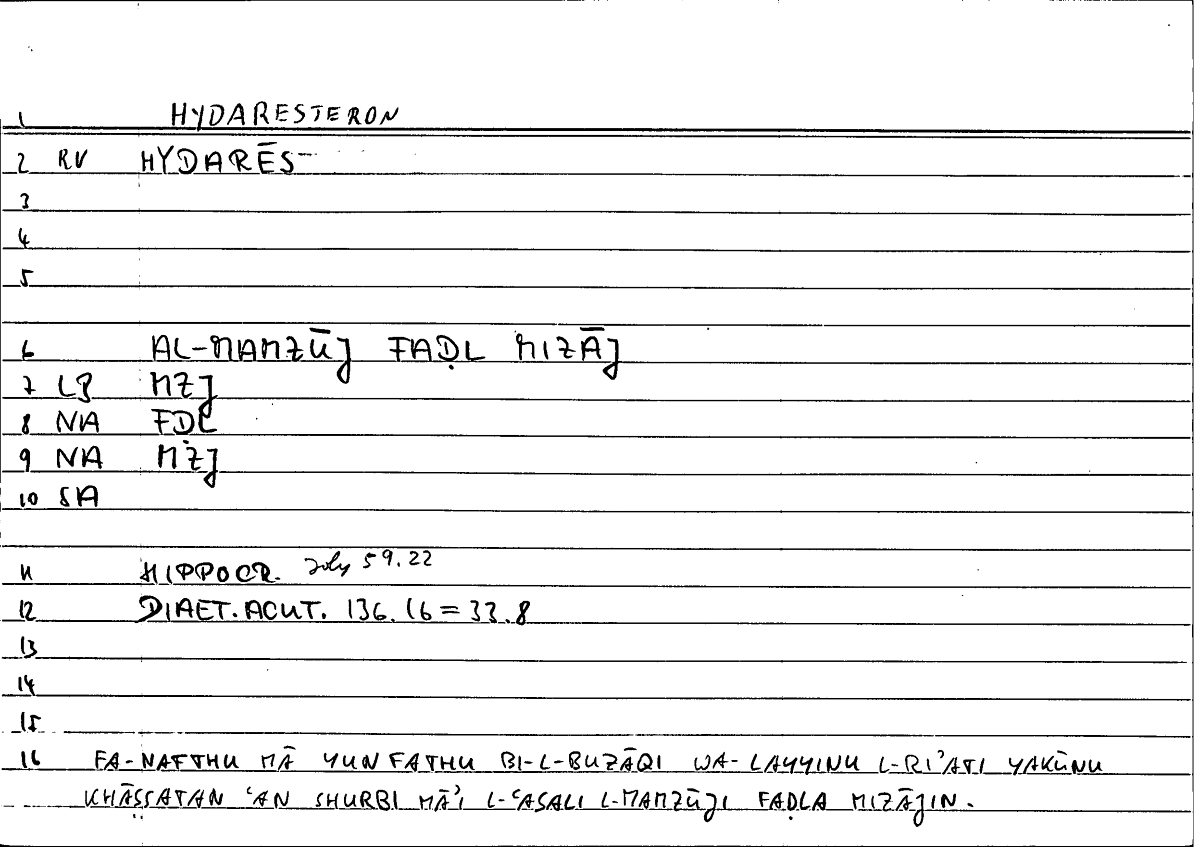 1 HYDARESTERON
2 RV HYDARĒS
3
4
5
6 AL-MAMZŪJ FAḌL MIZĀJ
7 LB MZJ
8 NA FḌL
9 NA MZJ
10 SA
11 HIPPOCR. Joly 59.22
12 DIAET.ACUT. 136.16 = 33.8
13
14
15
16 FA-NAFTHU MĀ YUNFATHU BI-L-BUZĀQI WA-LAYYINU L-RI’ATI YAKŪNU
KHĀṢṢATAN ‘AN SHURBI MĀ’I L-‘ASALI L-MAMZŪJI FAḌLA MIZĀJIN.